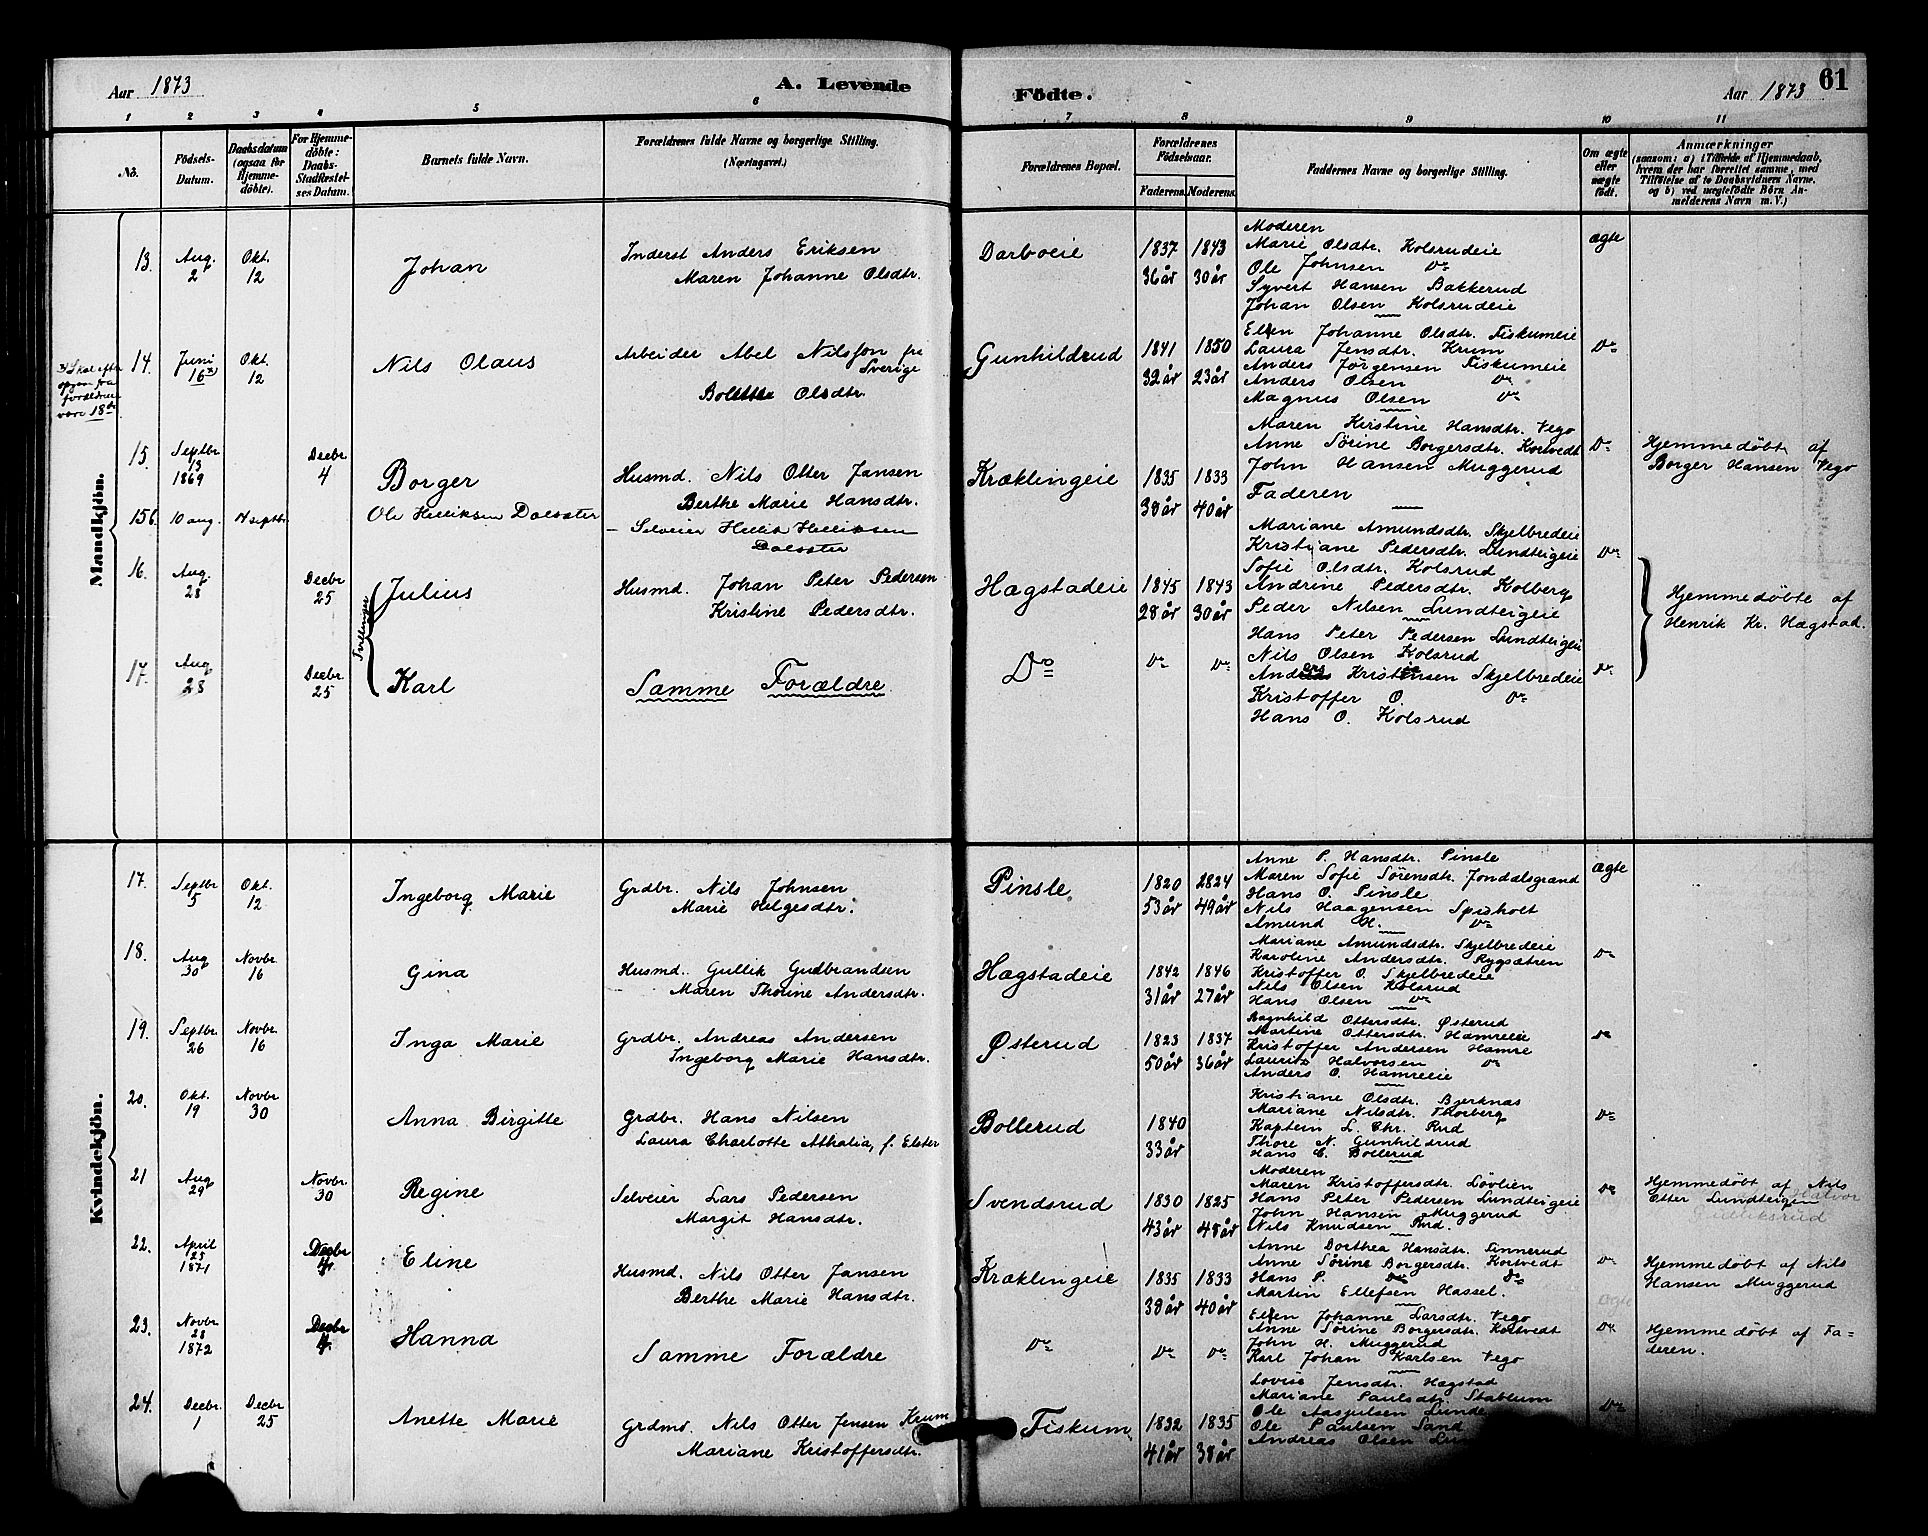 Aar 1873
A. Levende
Födte.
Aar 1873
61
1 2 3 4 5 6 7 8 9 10 11
No.
Födsels-
Datum.
Daabsdatum
(ogsaa for
Hjemme-
döbte).
For Hjemme-
döbte:
Daabs-
Stadfæstel-
ses Datum.
Barnets fulde Navn.
Forældrenes fulde Navne og borgerlige Stilling.
(Næringsvei.)
Forældrenes Bopæl.
Forældrenes
Födselsaar.
Faderens. Moderens.
Faddernes Navne og borgerlige Stilling.
Om ægte
eller
uægte
födt.
Anmærkninger
(saasom: a) i Tilfælde af Hjemmedaab,
hvem der har forrettet samme, med
Tilföielse af to Daabsvidners Navne,
og b) ved uægtefödte Börn An-
melderens Navn m. V.)
Mandkjön.
13. Aug. 2 Okt. 12 Johan
Inderst Anders Eriksen
Maren Johanne Olsdtr.
Darboeie
1837 1843
36 år 30 år
Moderen
Marie Olsdtr. Kolsrudeie
Ole Johnsen Do
Syvert Hansen Bakkerud
Johan Olsen Kolsrudeie
ægte
opgav fra
forældrene
være 18de
14. Juni 16 Okt. 12 Nils Olaus
Arbeider Abel Nilsson fra
Sverige
Bolette Olsdtr.
Gunhildrud
1841 1850
32 år 23 år
Ellen Johanne Olsdtr. Fiskumeie
Laura Jensdtr. Krum
Anders Jørgensen Fiskumeie
Anders Olsen Do
Magnus Olsen Do
Do
15. Septbr 13 1869 Decbr 4 Borger
Husmd. Nils Otter Jansen
Berthe Marie Hansdtr.
Kræklingeie
1835 1833
38 år 40 år
Maren Kirstine Hansdtr. Vego
Anne Sørine Borgersdtr. Kortvedt
John Hansen Muggerud
Faderen
Do
Hjemmedøbt af
Borger Hansen Vego
15b. 10 aug. 14 septbr. Ole Helliksen Dalsæter
– Selveier Hellik Helliksen
Dalsæter
16. Aug. 28 Decbr 25 Tvillinger Julius
Husmd. Johan Peter Pedersen
Kristine Pedersdtr.
Hægstadeie
1845 1843
28 år 30 år
Mariane Amundsdtr. Skjelbredeie
Kristiane Pedersdtr. Lundteigeie
Sofie Olsdtr. Kolsrud
Andrine Pedersdtr. Kolberg
Peder Nilsen Lundteigeie
Do
Hjemmedøbte af
Henrik Kr. Hægstad.
17. Aug 28 Decbr. 25 Karl
Samme Forældre
Do
Do Do
Hans Peter Pedersen Lundteigeie
Nils Olsen Kolsrud
Anders Kristensen Skjelbredeie
Kristoffer O. Do
Hans O. Kolsrud
Do
Kvindekjön.
17. Septbr 5 Okt. 12 Ingeborg Marie
Grdbr. Nils Johnsen
Marie Helgesdtr.
Pinsle
1820 2824
53 år 49 år
Anne P. Hansdtr. Pinsle
Maren Sofie Sörensdtr. Jondalsgrand
Hans O. Pinsle
Nils Haagensen Spisholt
Amund H. Do
ægte
18. Aug 30 Novbr 16 Gina
Husmd. Gullik Gudbrandsen
Maren Thorine Andersdtr.
Hægstadeie
1842 1846
31 år 27 år
Mariane Amundsdtr. Skjelbredeie
Karoline Andersdtr. Rygsætren
Kristoffer O. Skjelbredeie
Nils Olsen Kolsrud
Hans Olsen Do
Do
19. Septbr. 26 Novbr. 16 Inga Marie
Grdbr. Andreas Andersen
Ingeborg Marie Hansdtr.
Østerud
1823 1837
50 år 36 år
Ragnhild Ottersdtr. Østerud
Martine Ottersdtr. Hamreeie
Kristoffer Andersen Hamre
Lauritz Halvorsen Do
Anders O. Hamreeie
Do
20. Okt. 19 Novbr 30 Anna Birgitte
Grdbr. Hans Nilsen
Laura Charlotte Athalia, f. Elster
Bollerud
1840
33 år
Kristiane Olsdtr. Bjerknæs
Mariane Nilsdtr. Thorberg
Kaptein L. Chr. Rud
Thore N. Gunhildrud
Hans C. Bollerud
Do
21 Aug 29 Novbr 30 Regine
Selveier Lars Pedersen
Margit Hansdtr.
Svendsrud
1830 1825
43 år 48 år
Moderen
Maren Kristoffersdtr. Løvlien
Hans Peter Pedersen Lundteigeie
John Hansen Muggerud
Nils Knudsen Rud.
Do
Hjemmedøbt af Nils
Otter Lundteigen
22. April 25 1871 Decbr 4 Eline
Husmd. Nils Otter Jansen
Berthe Marie Hansdtr.
Kræklingeie
1835 1833
38 år 40 år
Anne Dorthea Hansdtr. Linnerud
Anne Sørine Borgersdtr. Kortvedt
Hans P. Do Do
Martin Ellefsen Hassel.
Do
Hjemmedøbt af Nils
Hansen Muggerud
23. Novbr 28 1872 Decbr 4 Hanna
Samme Forældre
Do
Do Do
Ellen Johanne Larsdtr. Vego
Anne Sørine Borgersdtr. Kortvedt
John H. Muggerud
Karl Johan Karlsen Vego
Do
Hjemmedøbt af Fa-
deren.
24. Decbr. 1 Decbr 25 Anette Marie
Grdmd. Nils Otter Jensen Krum
Mariane Kristoffersdtr.
Fiskum
1832 1835
41 år 38 år
Lovise Jensdtr. Hægstad
Mariane Paulsdtr. Stablum
Ole Aasjulsen
Ole Paulsen Sand
Andreas Olsen
Do